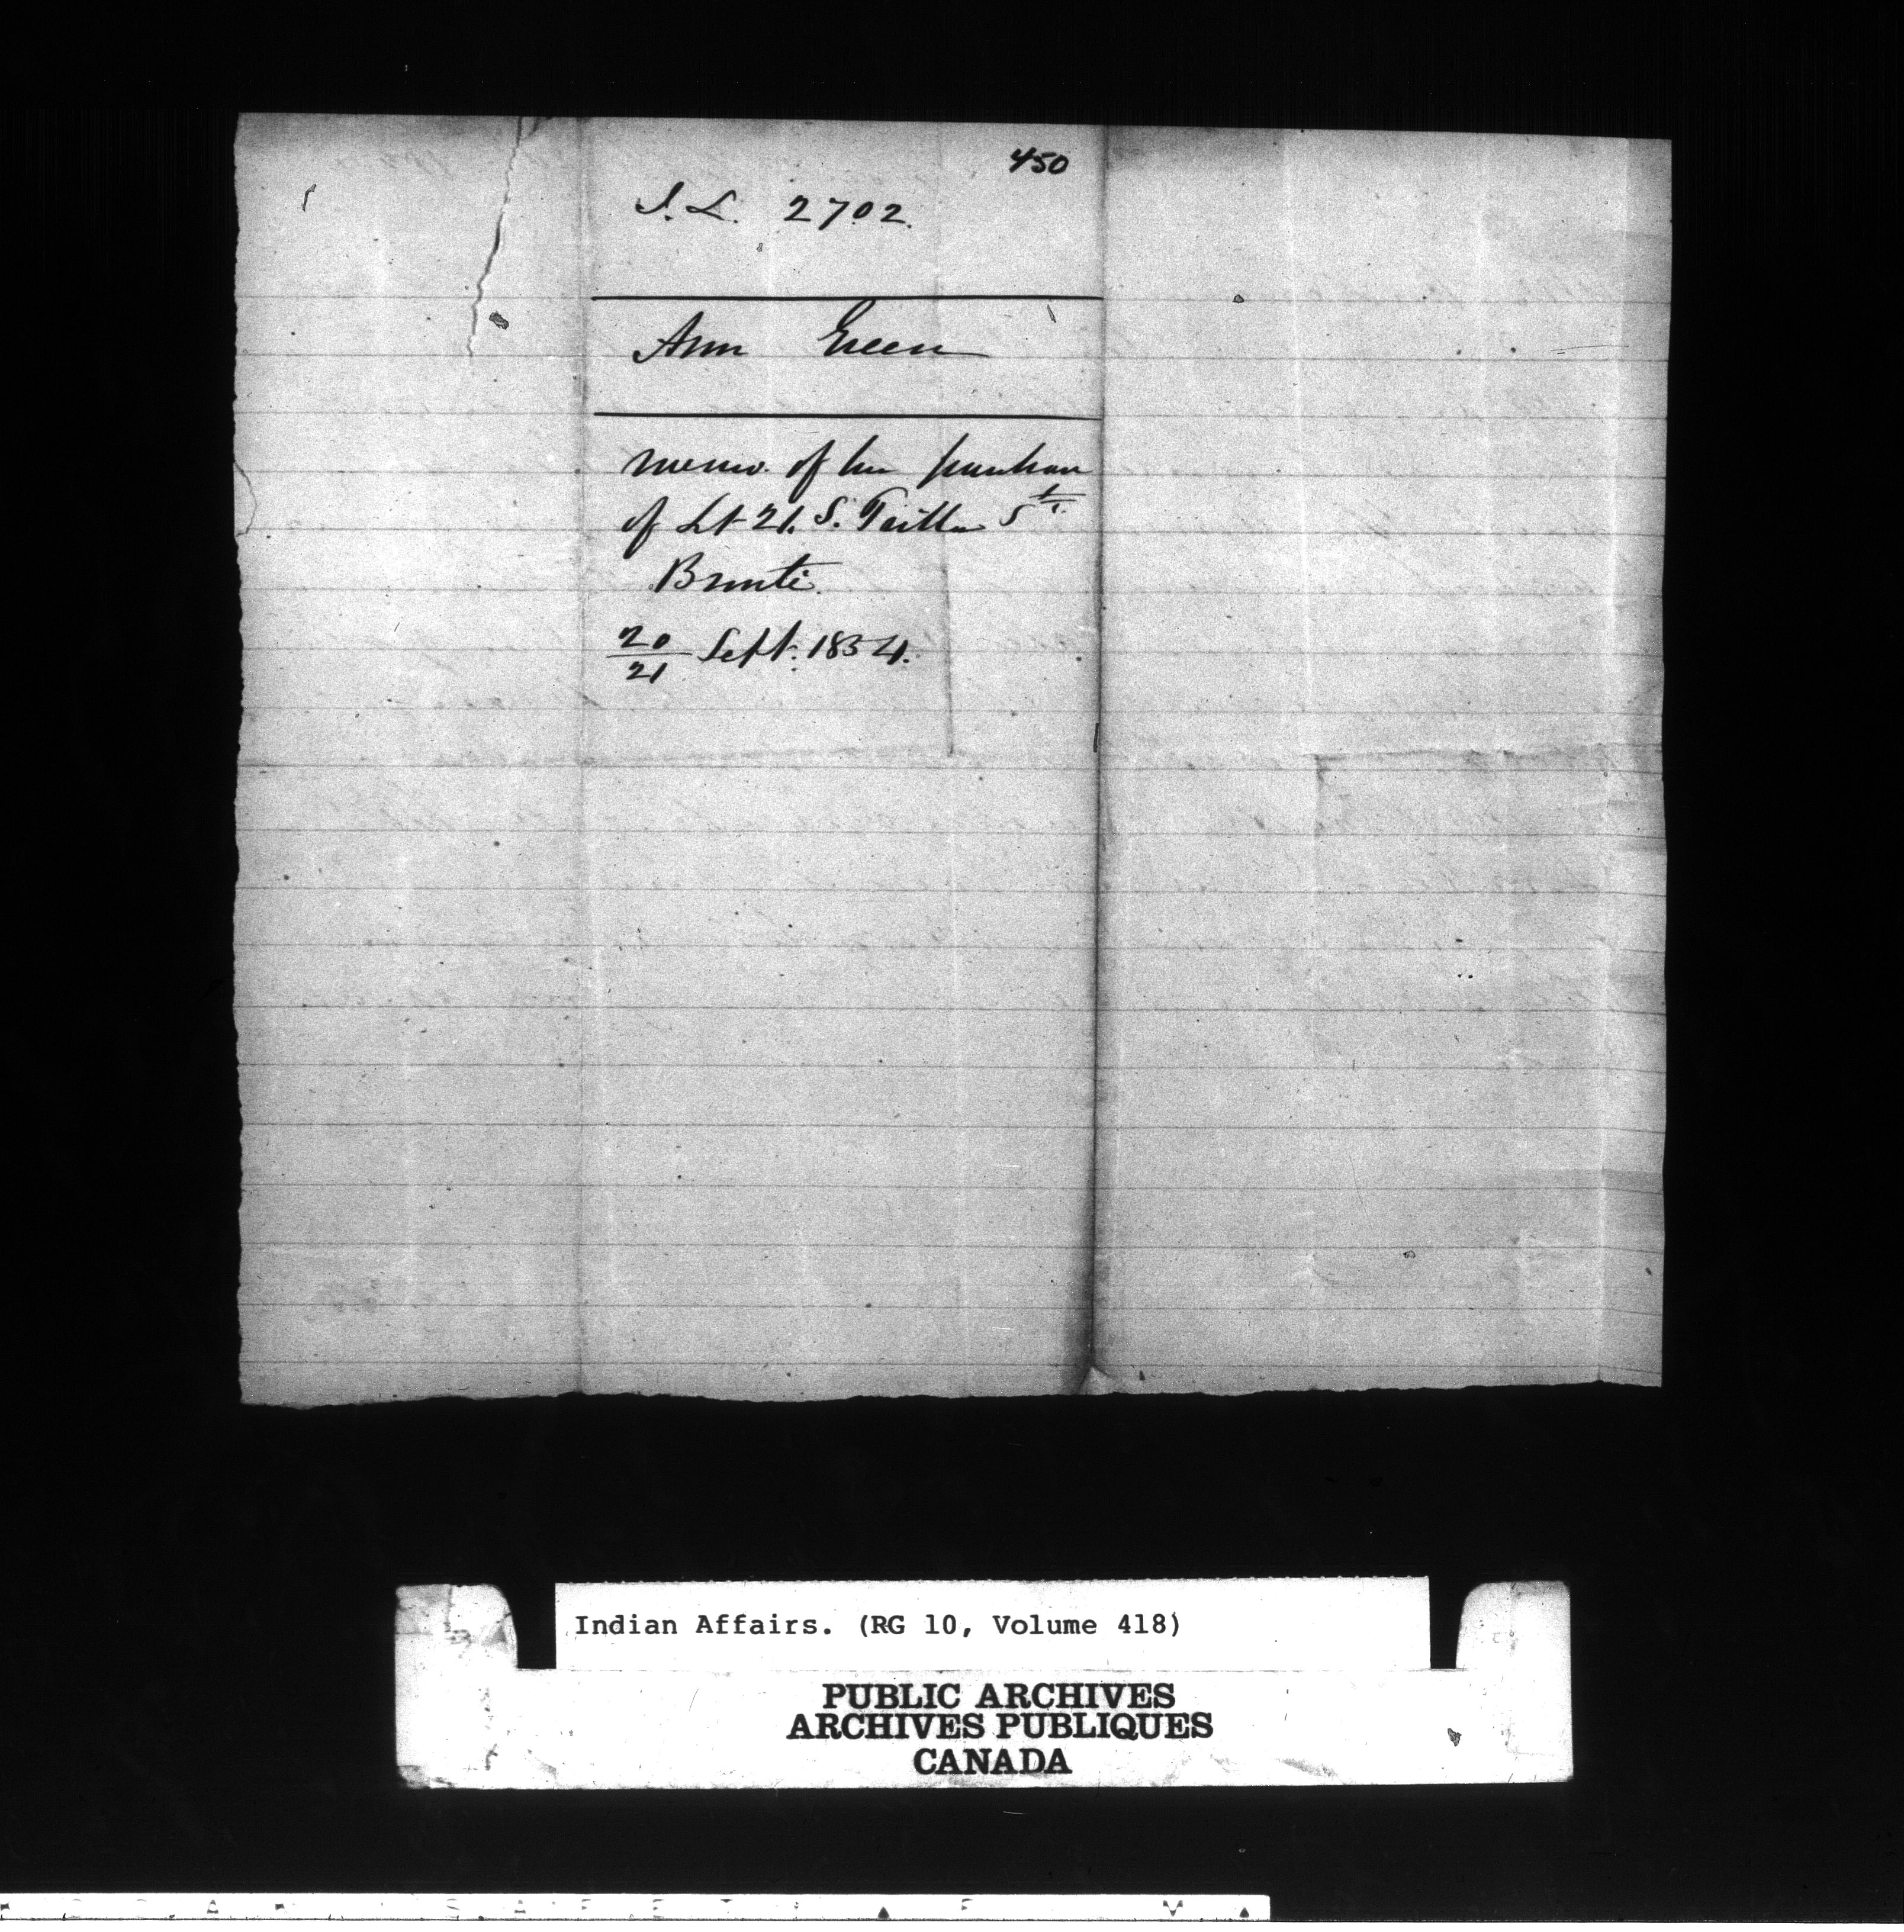 450
I.L. 2702.
Ann Green
memo. of her purchase
of Lt 21. S. Tuitla 5th
Brunti.
20/21 Sept. 1854.
Indian Affairs. (RG 10, Volume 418)
PUBLIC ARCHIVES
ARCHIVES PUBLIQUES
CANADA